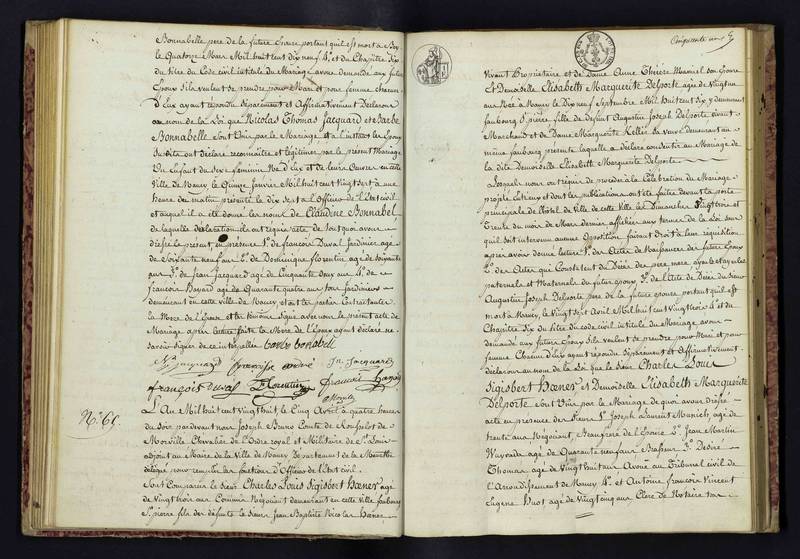 Bonnabelle pere de la future Epouse portant qu'il est mort à
le Quatorze Mars Mil huit cent dix neuf 4º. et du Chapitre Six
du titre du Code civil intitulé du Mariage avons demandé aux futurs
Epoux s'ils veulent se prendre pour Mari et pour femme chacun
D'Eux ayant répondu séparément et Affirmativement Déclarons
au nom de la Loi que Nicolas Thomas Jacquard et Barbe
Bonnabelle sont Unis par le Mariage et à l'instant les Epoux
susdits ont déclaré reconnaître et légitimer par le présent Mariage
Un Enfant du sexe feminin Né d'Eux et de leurs Œuvres en cette
Ville de Nancy le Quinze Janvier Mil huit cent Vingt sept à une
heure du matin présenté le dix sept à l'Officier de l'Etat civil
et auquel il a été donné les noms de Claudine Bonnabel,
de laquelle déclaration ils ont réquis acte De tout quoi avons
dressé le present en présence 1º. de françois Duval Jardinier agé
de Soixante neuf ans 2º. de Dominique florentin agé de Soixante
ans 3º. de Jean Jacquard agé de Cinquante Deux ans 4º. de
françois Boyard agé de Quarante quatre ans tous Jardiniers
demeurant en cette ville de Nancy et ont les parties Contractantes
la Mere de l'Epouse et les témoins signé avec nous le présent acte de
Mariage après lecture faite la Mere de l'Epoux ayant déclaré ne
savoir signer de ce interpellée barbe bonabell
N. jacquard françoise andré Jn. Jacquard
françois duval D. Florentin francois
Nº. 69.
L'An Mil huit cent Vingt huit, le Cinq Avril à quatre heures
du Soir pardevant nous Joseph Bruno Comte de Rousselot de
Morville Chevalier de l'Ordre royal et Militaire de St. Louis
adjoint au Maire de la Ville de Nancy Departement de la Meurthe
délégué pour remplir les fonctions d'Officier de l'Etat civil.
Sont Comparus le Sieur Charles Louis Sigisbert Hœner agé
de Vingt trois ans Commis Négociant demeurant en cette Ville faubourg
St. pierre fils des défunts le Sieur Jean Baptiste Nicolas Hœner
Cinquante un
vivant Propriétaire et de Dame Anne Thérèse Mamiel son Epouse
Et Demoiselle Elisabeth Marguerite Delporte agée de Vingt un
ans Née à Nancy le Dix neuf Septembre Mil huit cent Six y demeurant
faubourg St. pierre, fille de défunt Augustin Joseph Delporte vivant
Marchand et de Dame Marguerite Keller sa veuve demeurant au
même faubourg présente laquelle a déclaré consentir au Mariage de
la dite Demoiselle Elisabeth Marguerite Delporte
Lesquels nous ont réquis de procéder à la Célébration du Mariage
projeté entre eux et dont les publications ont été faites devant la porte
principale de l'hôtel de Ville de cette Ville les Dimanches Vingt trois et
Trente du mois de Mars dernier affichées aux termes de la Loi sans
qu'il soit intervenu aucune Opposition faisant droit à leur réquisition
après avoir donné lecture 1º. des Actes de Naissances des futurs Epoux
2º. des Actes qui Constatent les Décès des pere mere ayeuls et ayeules
paternels et Maternels du futur époux 3º. de l'Acte de Décès du Sieur
Augustin Joseph Delporte pere de la future épouse portant qu'il est
mort à Nancy, le Vingt sept Avril Mil huit cent Vingt trois 4º. et du
Chapitre Six du titre du code civil intitulé du Mariage, avons
demandé aux futurs Epoux s'ils veulent se prendre pour Mari et pour
femme Chacun d'Eux ayant répondu séparément et Affirmativement
déclarons au nom de la Loi que le Sieur Charles Louis
Sigisbert Hœner et Demoiselle Elisabeth Marguerite
Delporte sont Unis par le Mariage de quoi avons dressé
acte en presence des Sieurs 1º. Joseph Laurent Munich, agé de
trente ans Négociant, Beaufrere de l'Epouse 2º. Jean Martin
agé de Quarante neuf ans Brasseur 3º. Désiré
Thomas agé de Vingt huit ans Avoué au Tribunal civil de
l'Arrondissement de Nancy 4º. et Antoine françois Vincent
Eugène Huot agé de Vingt cinq ans Clerc de Notaire tous